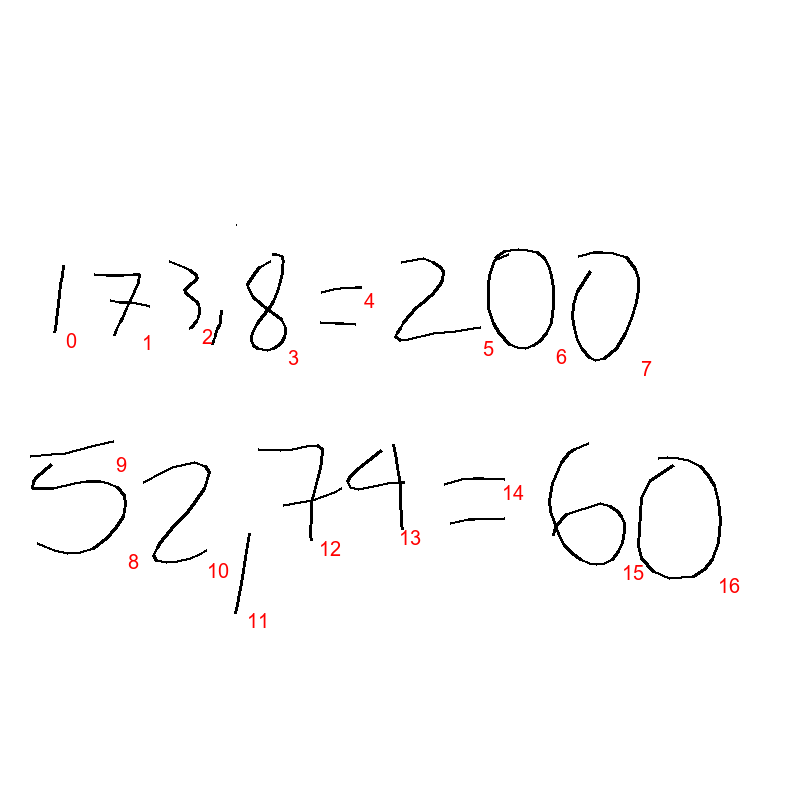 173,8=200
0 1 2 3 4 5 6 7
52,74=60
9 8 10 11 12 13 14 15 16